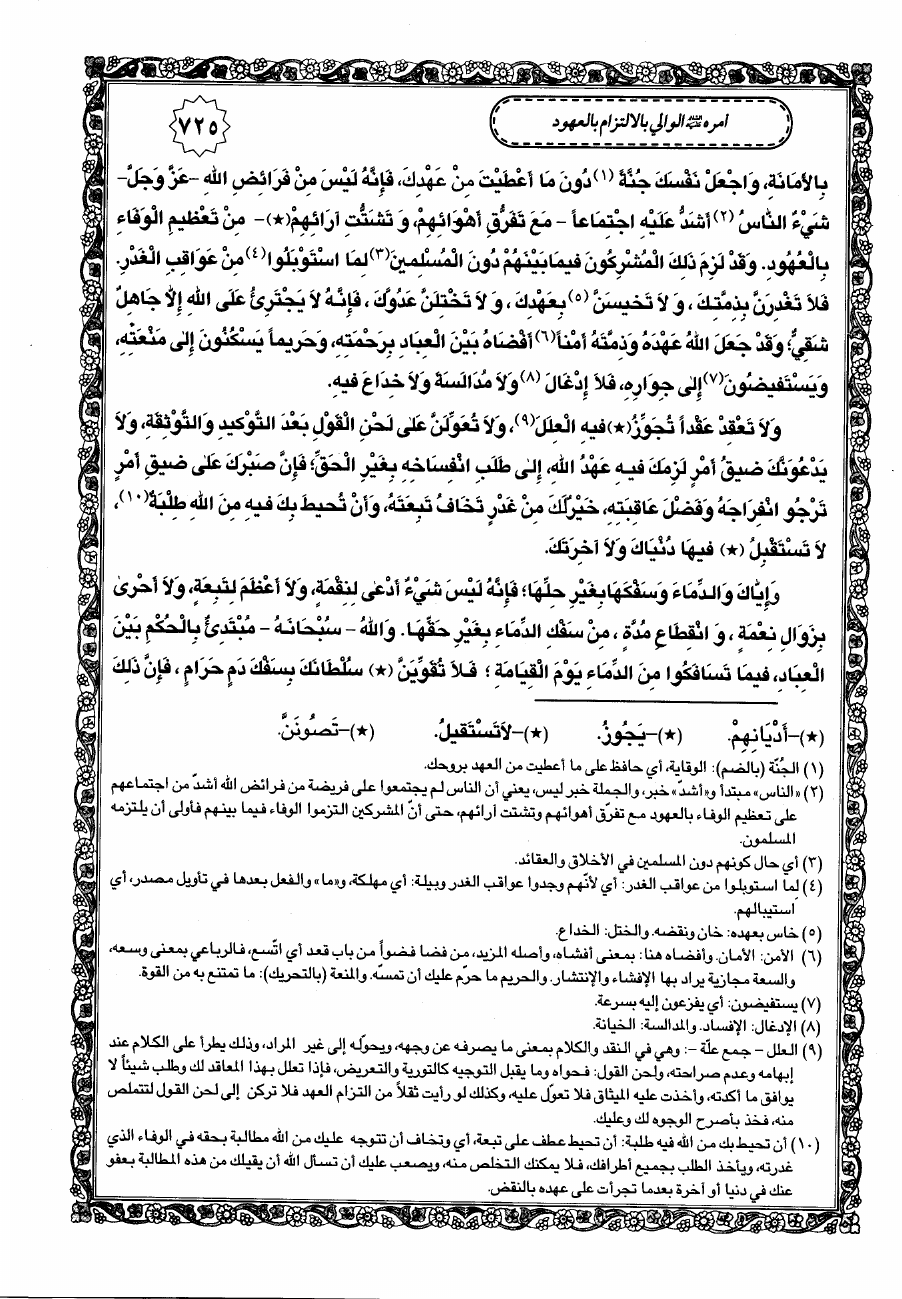 أمره ﷺ الوالي بالالتزام بالعهود
٧٢٥
بِالأَمَانَةِ، وَاجْعَلْ نَفْسَكَ جُنَّةً (١) دُونَ مَا أَعْطَيْتَ مِنْ عَهْدِكَ، فَإِنَّهُ لَيْسَ مِنْ فَرَائِضِ اللهِ -عَزَّ وَجَلَّ-
شَيْءٌ النَّاسُ (٢) أَشَدُّ عَلَيْهِ اجْتِمَاعاً - مَعَ تَفَرُّقِ أَهْوَائِهِمْ، وَ تَشَتُّتِ آرَائِهِمْ (★) - مِنْ تَعْظِيمِ الْوَفَاءِ
بِالْعُهُودِ. وَقَدْ لَزِمَ ذَلِكَ الْمُشْرِكُونَ فِيمَا بَيْنَهُمْ دُونَ الْمُسْلِمِينَ (٣) لِمَا اسْتَوْبَلُوا (٤) مِنْ عَوَاقِبِ الْغَدْرِ.
فَلاَ تَغْدِرَنَّ بِذِمَّتِكَ ، وَ لاَ تَخِيسَنَّ (٥) بِعَهْدِكَ ، وَ لاَ تَخْتِلَنَّ عَدُوَّكَ ، فَإِنَّهُ لاَ يَجْتَرِئُ عَلَى اللهِ إِلاَّ جَاهِلٌ
شَقِيٌّ؛ وَقَدْ جَعَلَ اللهُ عَهْدَهُ وَذِمَّتَهُ أَمْناً (٦) أَفْضَاهُ بَيْنَ الْعِبَادِ بِرَحْمَتِهِ، وَحَرِيماً يَسْكُنُونَ إِلىٰ مَنْعَتِهِ،
وَيَسْتَفِيضُونَ (٧) إِلى جِوَارِهِ، فَلاَ إِدْغَالَ (٨) وَلاَ مُدَالَسَةَ وَلاَ خِدَاعَ فِيهِ.
وَلاَ تَعْقِدْ عَقْداً تُجَوِّزُ (★) فِيهِ الْعِلَلَ (٩)، وَلاَ تُعَوِّلَنَّ عَلى لَحْنِ الْقَوْلِ بَعْدَ التَّوْكِيدِ وَالتَّوْثِقَةِ، وَلاَ
يَدْعُوَنَّكَ ضِيقُ أَمْرٍ لَزِمَكَ فِيهِ عَهْدُ اللهِ، إِلى طَلَبِ انْفِسَاخِهِ بِغَيْرِ الْحَقِّ؛ فَإِنَّ صَبْرَكَ عَلىٰ ضِيقِ أَمْرٍ
تَرْجُو انْفِرَاجَهُ وَفَضْلَ عَاقِبَتِهِ، خَيْرٌ لَكَ مِنْ غَدْرٍ تَخَافُ تَبِعَتَهُ، وَأَنْ تُحِيطَ بِكَ فِيهِ مِنَ اللهِ طِلْبَةٌ (١٠) ،
لاَ تَسْتَقْبِلُ (★) فِيهَا دُنْيَاكَ وَلاَ آخِرَتَكَ.
وَإِيَّاكَ وَالدِّمَاءَ وَسَفْكَهَا بِغَيْرِ حِلِّهَا؛ فَإِنَّهُ لَيْسَ شَيْءٌ أَدْعٰى لِنِقْمَةٍ، وَلاَ أَعْظَمَ لِتَبِعَةٍ، وَلاَ أَحْرىٰ
بِزَوَالِ نِعْمَةٍ ، وَ انْقِطَاعِ مُدَّةٍ ، مِنْ سَفْكِ الدِّمَاءِ بِغَيْرِ حَقِّهَا. وَاللهُ - سُبْحَانَهُ - مُبْتَدِئٌ بِالْحُكْمِ بَيْنَ
الْعِبَادِ، فِيمَا تَسَافَكُوا مِنَ الدِّمَاءِ يَوْمَ الْقِيَامَةِ ؛ فَلاَ تُقَوِّيَنَّ (★) سُلْطَانَكَ بِسَفْكِ دَمٍ حَرَامٍ ، فَإِنَّ ذَلِكَ
(★)-أَدْيَانِهِمْ. (★)-يَجُوزُ. (★)-لاَ تَسْتَقِيلُ. (★)-تَصُونَنَّ.
(١) الجُنّة (بالضم): الوقاية، أي حافظ على ما أعطيت من العهد بروحك.
(٢) «الناس» مبتدأ و«أشدّ» خبر، والجملة خبر ليس، يعني أن الناس لم يجتمعوا على فريضة من فرائض الله أشدّ من اجتماعهم
على تعظيم الوفاء بالعهود مع تفرّق أهوائهم وتشتت آرائهم، حتى أنّ المشركين التزموا الوفاء فيما بينهم فأولى أن يلتزمه
المسلمون.
(٣) أي حال كونهم دون المسلمين في الأخلاق والعقائد.
(٤) لما استوبلوا من عواقب الغدر: أي لأنّهم وجدوا عواقب الغدر وبيلة: أي مهلكة، و«ما» والفعل بعدها في تأويل مصدر، أي
استيبالهم.
(٥) خاس بعهده: خان ونقضه. والختل: الخداع.
(٦) الأمن: الأمان. وأفضاه هنا: بمعنى أفشاه، وأصله المزيد، من فضا فضواً من باب قعد أي اتّسع، فالرباعي بمعنى وسعه،
والسعة مجازية يراد بها الإفشاء والإنتشار. والحريم ما حرّم عليك أن تمسّه. والمنعة (بالتحريك): ما تمتنع به من القوة.
(٧) يستفيضون: أي يفزعون إليه بسرعة.
(٨) الإدغال: الإفساد. والمدالسة: الخيانة.
(٩) العلل - جمع علّة -: وهي في النقد والكلام بمعنى ما يصرفه عن وجهه، ويحوّله إلى غير المراد، وذلك يطرأ على الكلام عند
إبهامه وعدم صراحته، ولحن القول: فحواه وما يقبل التوجيه كالتورية والتعريض، فإذا تعلل بهذا المعاقد لك وطلب شيئاً لا
يوافق ما أكدته، وأخذت عليه الميثاق فلا تعوّل عليه، وكذلك لو رأيت ثقلاً من التزام العهد فلا تركن إلى لحن القول لتتملص
منه، فخذ بأصرح الوجوه لك وعليك.
(١٠) أن تحيط بك من الله فيه طلبة: أن تحيط عطف على تبعة، أي وتخاف أن تتوجه عليك من الله مطالبة بحقه في الوفاء الذي
غدرته، ويأخذ الطلب بجميع أطرافك، فلا يمكنك التخلص منه، ويصعب عليك أن تسأل الله أن يقيلك من هذه المطالبة بعفو
عنك في دنيا أو آخرة بعدما تجرأت على عهده بالنقض.